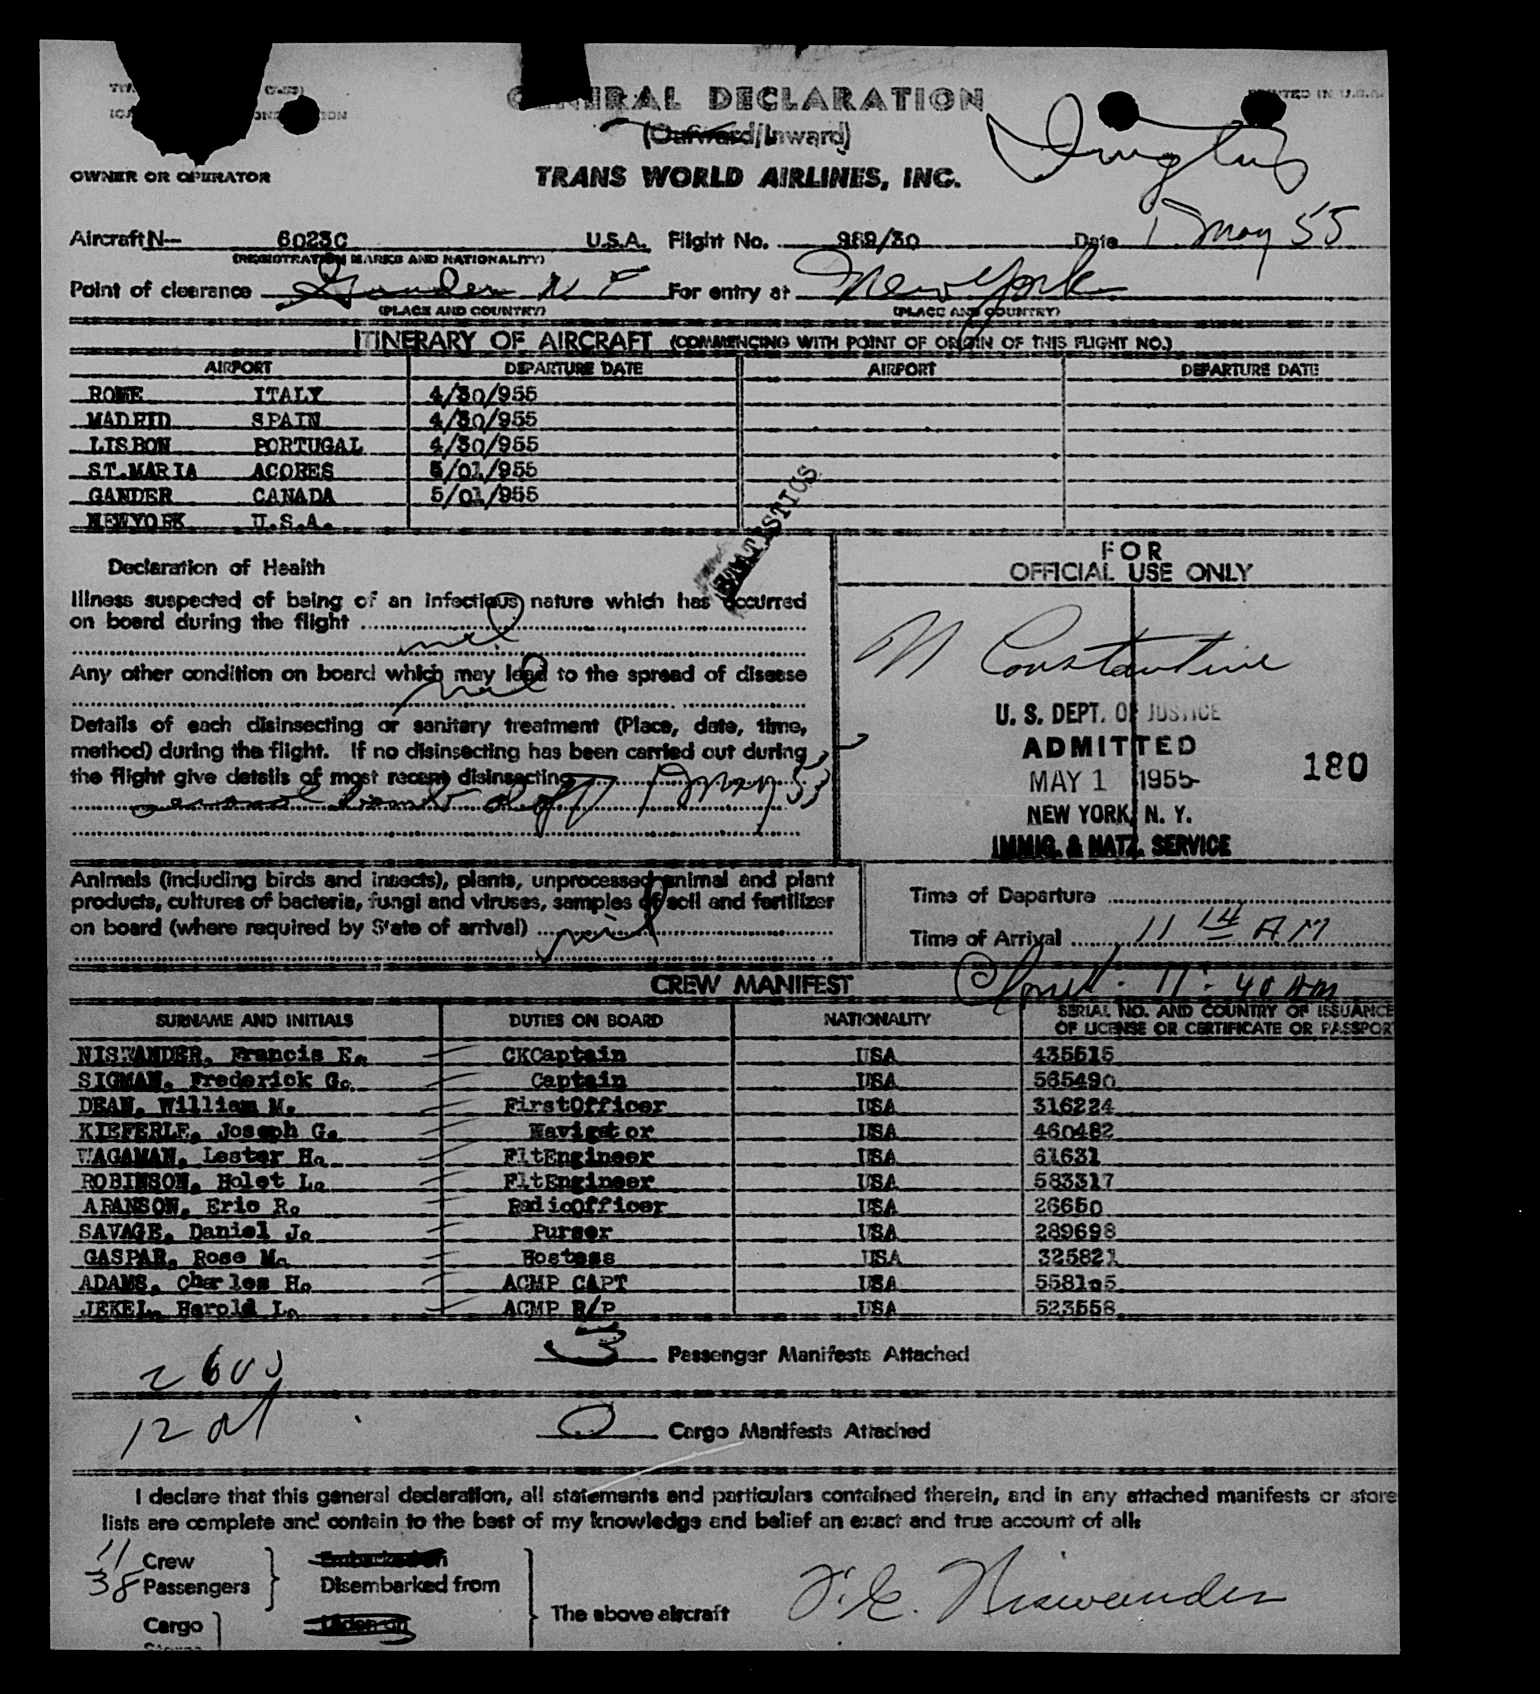 GENERAL DECLARATION
PRINTED IN U.S.A.
(Outward/Inward)
OWNER OR OPERATOR TRANS WORLD AIRLINES, INC.
Aircraft N— 6023C U.S.A. Flight No. 989/30 Date 1 May 55
(REGISTRATION MARKS AND NATIONALITY)
Point of clearance Gander N F For entry at New York
(PLACE AND COUNTRY) (PLACE AND COUNTRY)
ITINERARY OF AIRCRAFT (COMMENCING WITH POINT OF ORIGIN OF THIS FLIGHT NO.)
AIRPORT DEPARTURE DATE AIRPORT DEPARTURE DATE
ROME ITALY 4/30/955
MADRID SPAIN 4/30/955
LISBON PORTUGAL 4/30/955
ST.MARIA ACORES 5/01/955
GANDER CANADA 5/01/955
NEWYORK U.S.A.
STATISTICS
Declaration of Health
Illness suspected of being of an infectious nature which has occurred
on board during the flight
nil
Any other condition on board which may lead to the spread of disease
nil
Details of each disinsecting or sanitary treatment (Place, date, time,
method) during the flight. If no disinsecting has been carried out during
the flight give details of most recent disinsecting
1 May 55
FOR
OFFICIAL USE ONLY
N Constantine
U. S. DEPT. OF JUSTICE
ADMITTED
MAY 1 1955
180
NEW YORK, N. Y.
IMMIG. & NATZ. SERVICE
Animals (including birds and insects), plants, unprocessed animal and plant
products, cultures of bacteria, fungi and viruses, samples of soil and fertilizer
on board (where required by State of arrival) nil
Time of Departure
Time of Arrival 11 14 AM
11:40 AM
CREW MANIFEST
SURNAME AND INITIALS DUTIES ON BOARD NATIONALITY SERIAL NO. AND COUNTRY OF ISSUANCE
OF LICENSE OR CERTIFICATE OR PASSPOR
NISWANDER, Francis E. CKCaptain USA 435515
SIGMAN, Frederick G. Captain USA 565490
DEAN, William M. FirstOfficer USA 316224
KIEFERLE, Joseph G. Navigator USA 460482
WAGAMAN, Lester H. FltEngineer USA 61631
ROBINSON, Holet L. FltEngineer USA 583317
ARANSON, Eric R. RadioOfficer USA 26650
SAVAGE, Daniel J. Purser USA 289698
GASPAR, Rose M. Hostess USA 325821
ADAMS, Charles H. ACMP CAPT USA 558105
JEKEL, Harold L. ACMP R/P USA 523558
3 Passenger Manifests Attached
0 Cargo Manifests Attached
I declare that this general declaration, all statements and particulars contained therein, and in any attached manifests or store
lists are complete and contain to the best of my knowledge and belief an exact and true account of all:
11 Crew Embarked on
38 Passengers Disembarked from
The above aircraft F. E. Niswander
Cargo Laden on
Stores